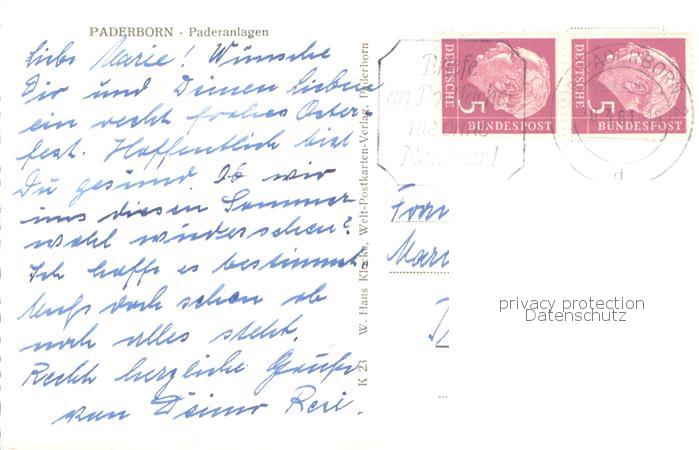 PADERBORN · Paderanlagen
Liebe Marie! Wünsche
Dir und Deinen Lieben
ein recht frohes Oster-
fest. Hoffentlich bist
Du gesund. Ob wir
uns diesen Sommer
wohl wiedersehen?
Ich hoffe es bestimmt
doch schon ob
noch alles steht.
Recht herzliche Grüße
von Deiner Resi.
K 23 W. Hans Klocke, Welt-Postkarten-Verlag, Paderborn
Briefe
an Postfächer
nie ohne
Nummer!
DEUTSCHE
5
BUNDESPOST
DEUTSCHE
5
BUNDESPOST
PADERBORN
d
Frau
privacy protection
Datenschutz